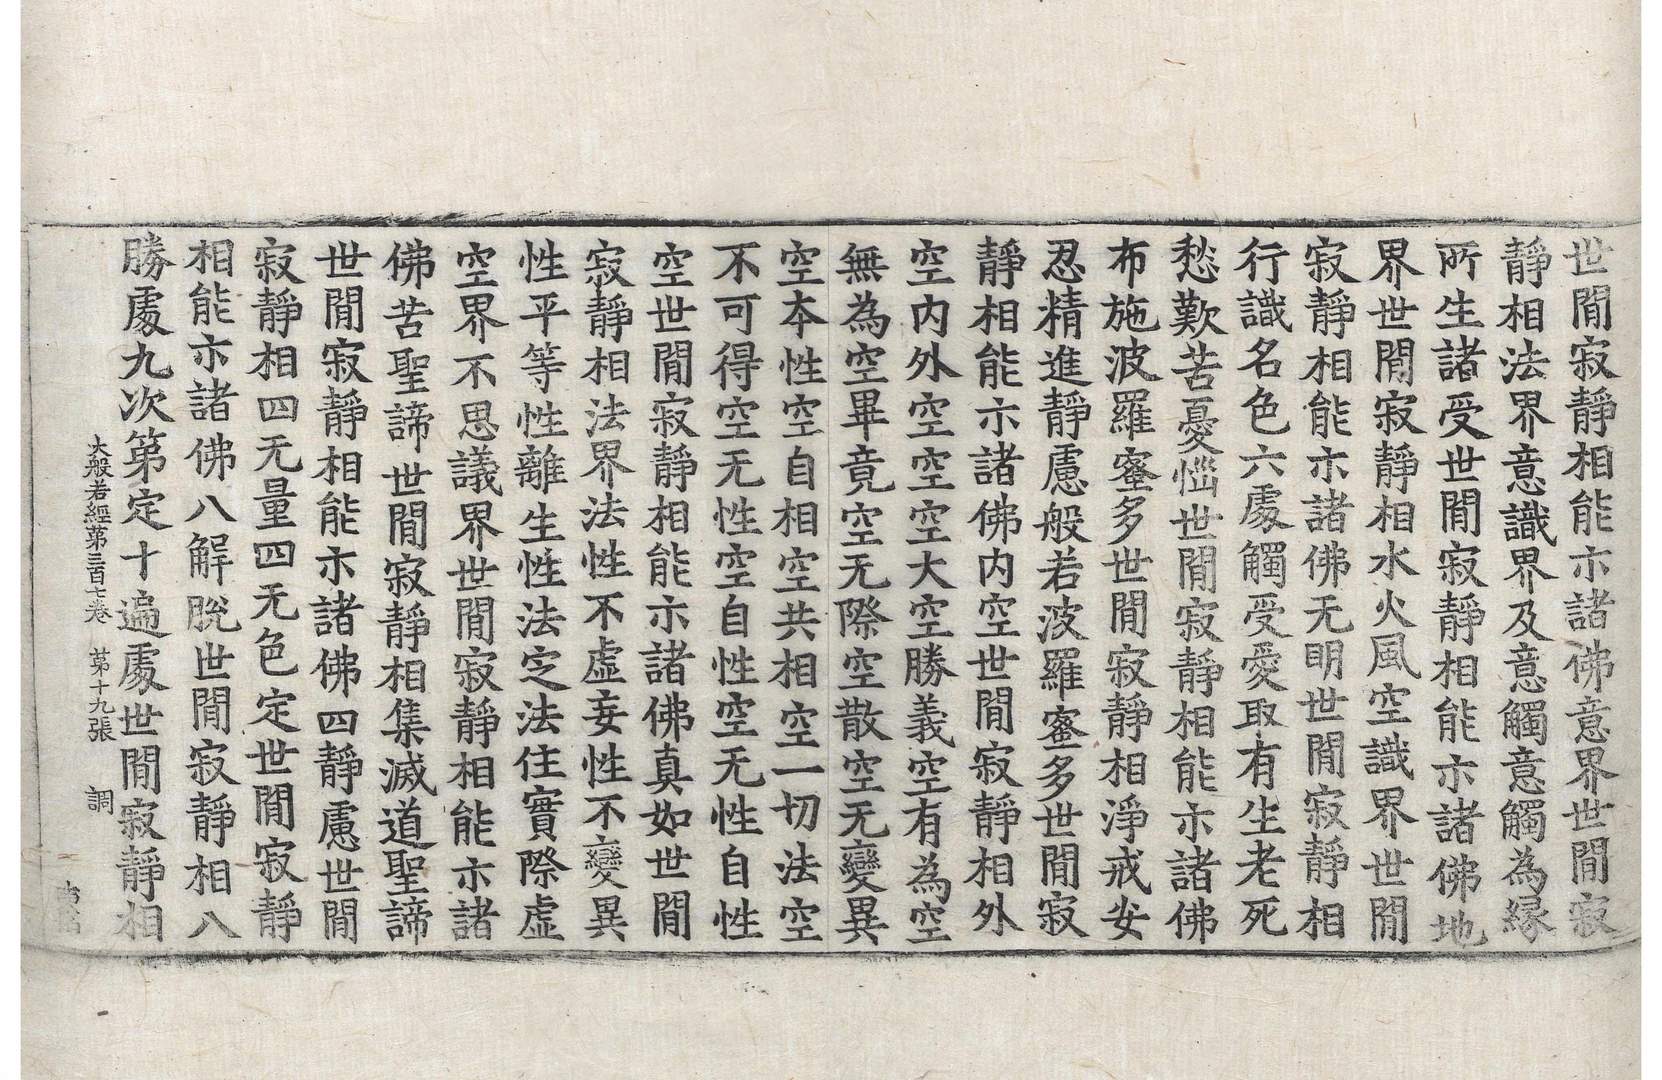 世間寂靜相能示諸佛意界世間寂
靜相法界意識界及意觸意觸為緣
所生諸受世間寂靜相能示諸佛地
界世間寂靜相水火風空識界世間
寂靜相能示諸佛无明世間寂靜相
行識名色六處觸受愛取有生老死
愁歎苦憂惱世間寂靜相能示諸佛
布施波羅蜜多世間寂靜相淨戒安
忍精進靜慮般若波羅蜜多世間寂
靜相能示諸佛內空世間寂靜相外
空內外空空空大空勝義空有為空
無為空畢竟空无際空散空无變異
空本性空自相空共相空一切法空
不可得空无性空自性空无性自性
空世間寂靜相能示諸佛真如世間
寂靜相法界法性不虛妄性不變異
性平等性離生性法定法住實際虛
空界不思議界世間寂靜相能示諸
佛苦聖諦世間寂靜相集滅道聖諦
世間寂靜相能示諸佛四靜慮世間
寂靜相四无量四无色定世間寂靜
相能示諸佛八解脫世間寂靜相八
勝處九次第定十遍處世間寂靜相
大般若經第三百七卷 第十九張 調